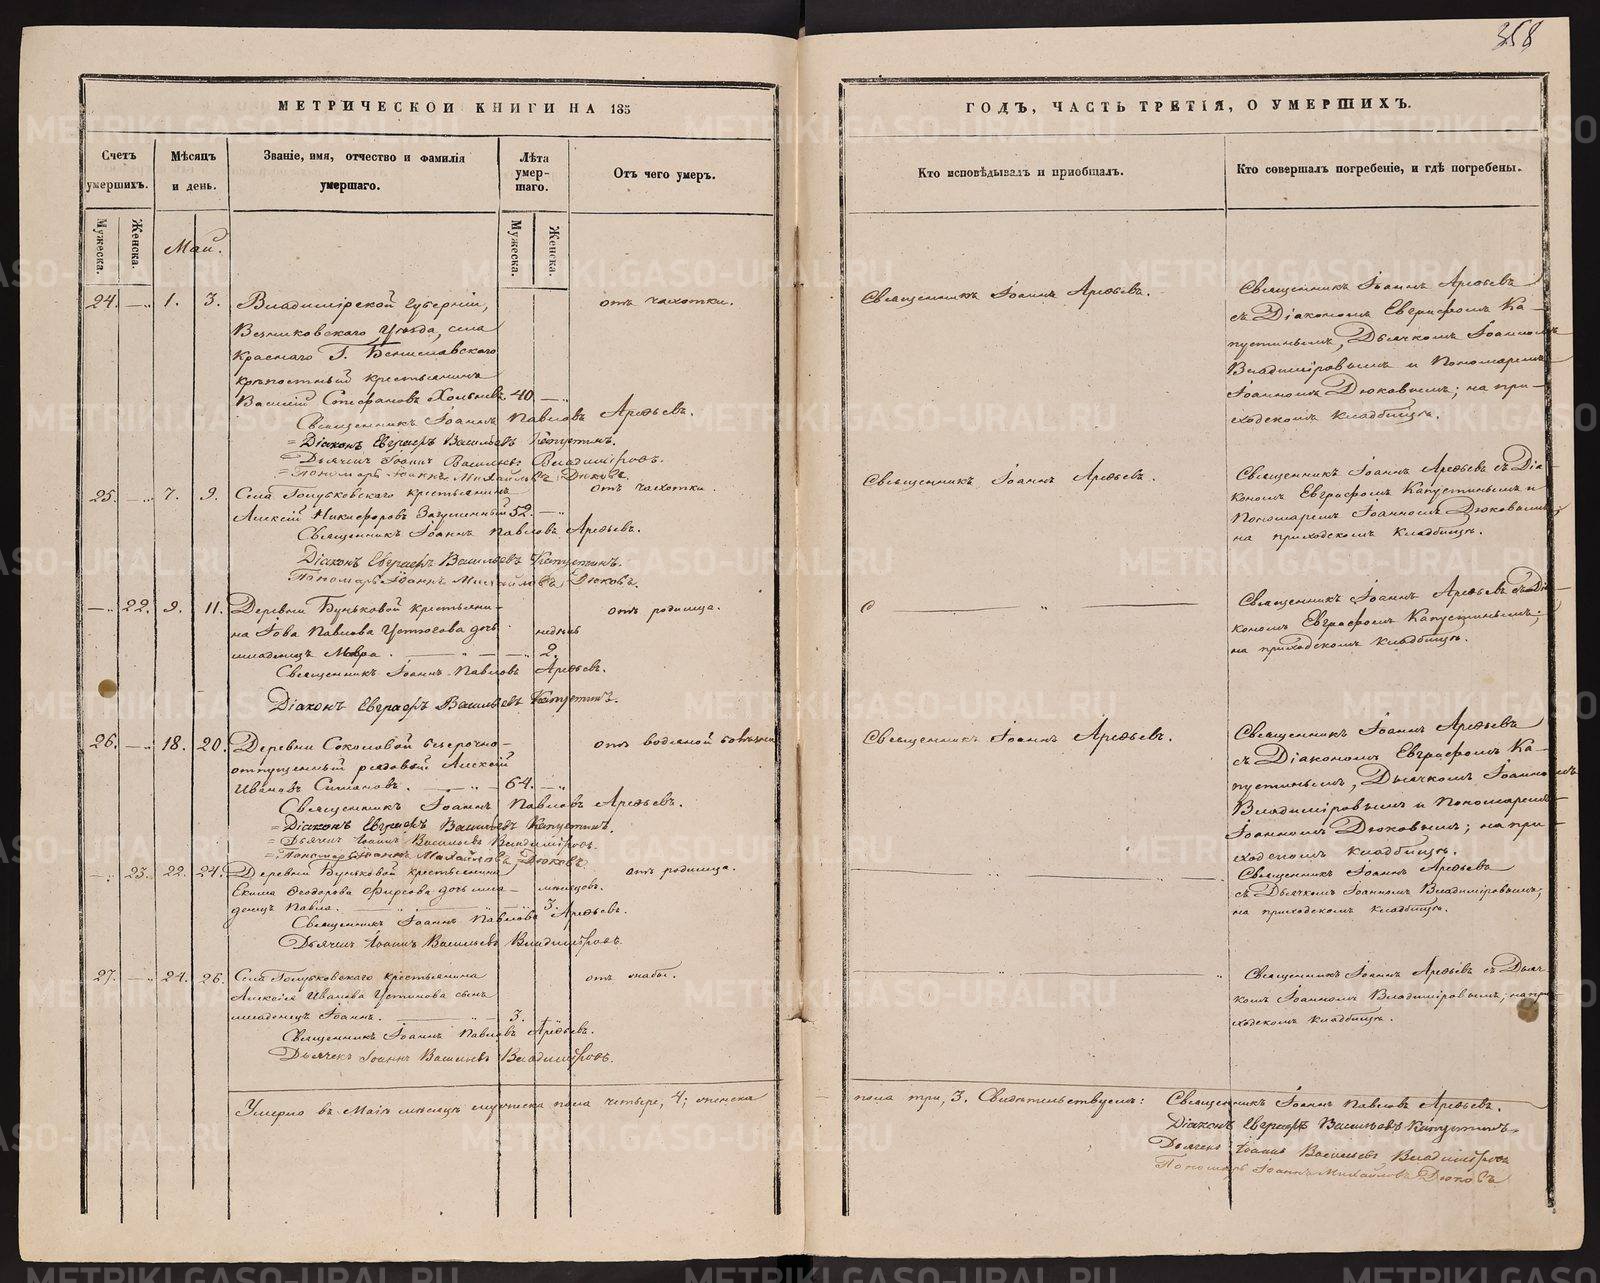 358
МЕТРИЧЕСКОЙ КНИГИ НА 185
ГОДЪ, ЧАСТЬ ТРЕТІЯ, О УМЕРШИХЪ.
Счетъ умершихъ.
Мѣсяцъ и день.
Званіе, имя, отчество и фамилія умершаго.
Лѣта умершаго.
Отъ чего умеръ.
Кто исповѣдывалъ и пріобщалъ.
Кто совершалъ погребеніе, и гдѣ погребены.
Мужеска.
Женска.
Мужеска.
Женска.
Май.
24. — 1. 3. Владимірской Губерніи,
Вязниковскаго Уѣзда, села
Краснаго Г.
крѣпостный крестьянинъ
Василій Стефановъ 40. —
отъ чахотки.
Священникъ Іоаннъ Павловъ Арефьевъ.
Діаконъ Евграфъ Васильевъ Капустинъ.
Дьячекъ Іоаннъ Васильевъ Владиміровъ.
Пономарь Іоаннъ Михайловъ Дюковъ.
Священникъ Іоаннъ Арефьевъ.
Священникъ Іоаннъ Арефьевъ
съ Діакономъ Евграфомъ Ка-
пустинымъ, Дьячкомъ Іоанномъ
Владиміровымъ и Пономаремъ
Іоанномъ Дюковымъ; на при-
ходскомъ кладбищѣ.
25. — 7. 9. Села крестьянинъ
Алексій Никифоровъ 52. —
отъ чахотки.
Священникъ Іоаннъ Павловъ Арефьевъ.
Діаконъ Евграфъ Васильевъ Капустинъ.
Пономарь Іоаннъ Михайловъ Дюковъ.
Священникъ Іоаннъ Арефьевъ.
Священникъ Іоаннъ Арефьевъ съ Діа-
кономъ Евграфомъ Капустинымъ и
Пономаремъ Іоанномъ Дюковымъ;
на приходскомъ кладбищѣ.
— 22. 9. 11. Деревни Буньковой крестьяни-
на Іова Павлова Устюгова дочь
младенецъ Мавра. — недѣль 2.
отъ родимца.
Священникъ Іоаннъ Павловъ Арефьевъ.
Діаконъ Евграфъ Васильевъ Капустинъ.
Священникъ Іоаннъ Арефьевъ съ Діа-
кономъ Евграфомъ Капустинымъ;
на приходскомъ кладбищѣ.
26. — 18. 20. Деревни Соколовой безсрочно-
отпущенный рядовый Алексій
Ивановъ Симановъ. 64. —
отъ водяной болѣзни
Священникъ Іоаннъ Павловъ Арефьевъ.
Діаконъ Евграфъ Васильевъ Капустинъ.
Дьячекъ Іоаннъ Васильевъ Владиміровъ.
Пономарь Іоаннъ Михайловъ Дюковъ
Священникъ Іоаннъ Арефьевъ.
Священникъ Іоаннъ Арефьевъ
съ Діакономъ Евграфомъ Ка-
пустинымъ, Дьячкомъ Іоанномъ
Владиміровымъ и Пономаремъ
Іоанномъ Дюковымъ; на при-
ходскомъ кладбищѣ.
— 23. 22. 24. Деревни Буньковой крестьянина
Екима Ѳеодорова Фирсова дочь мла-
денецъ Павла. — мѣсяцовъ. 3.
отъ родимца.
Священникъ Іоаннъ Павловъ Арефьевъ.
Дьячекъ Іоаннъ Васильевъ Владиміровъ.
Священникъ Іоаннъ Арефьевъ
съ Дьячкомъ Іоанномъ Владиміровымъ;
на приходскомъ кладбищѣ.
27. — 24. 26. Села крестьянина
Алексія Иванова Устинова сынъ
младенецъ Іоаннъ. 3. —
Священникъ Іоаннъ Павловъ Арефьевъ.
Дьячекъ Іоаннъ Васильевъ Владиміровъ.
Священникъ Іоаннъ Арефьевъ съ Дьяч-
комъ Іоанномъ Владиміровымъ; на при-
ходскомъ кладбищѣ.
Умерло въ Маіѣ мѣсяцѣ мужеска пола четыре, 4; женска
пола три, 3. Свидѣтельствуемъ: Священникъ Іоаннъ Павловъ Арефьевъ.
Діаконъ Евграфъ Васильевъ Капустинъ.
Дьячекъ Іоаннъ Васильевъ Владиміровъ
Пономарь Іоаннъ Михайловъ Дюковъ
METRIKI.GASO-URAL.RU